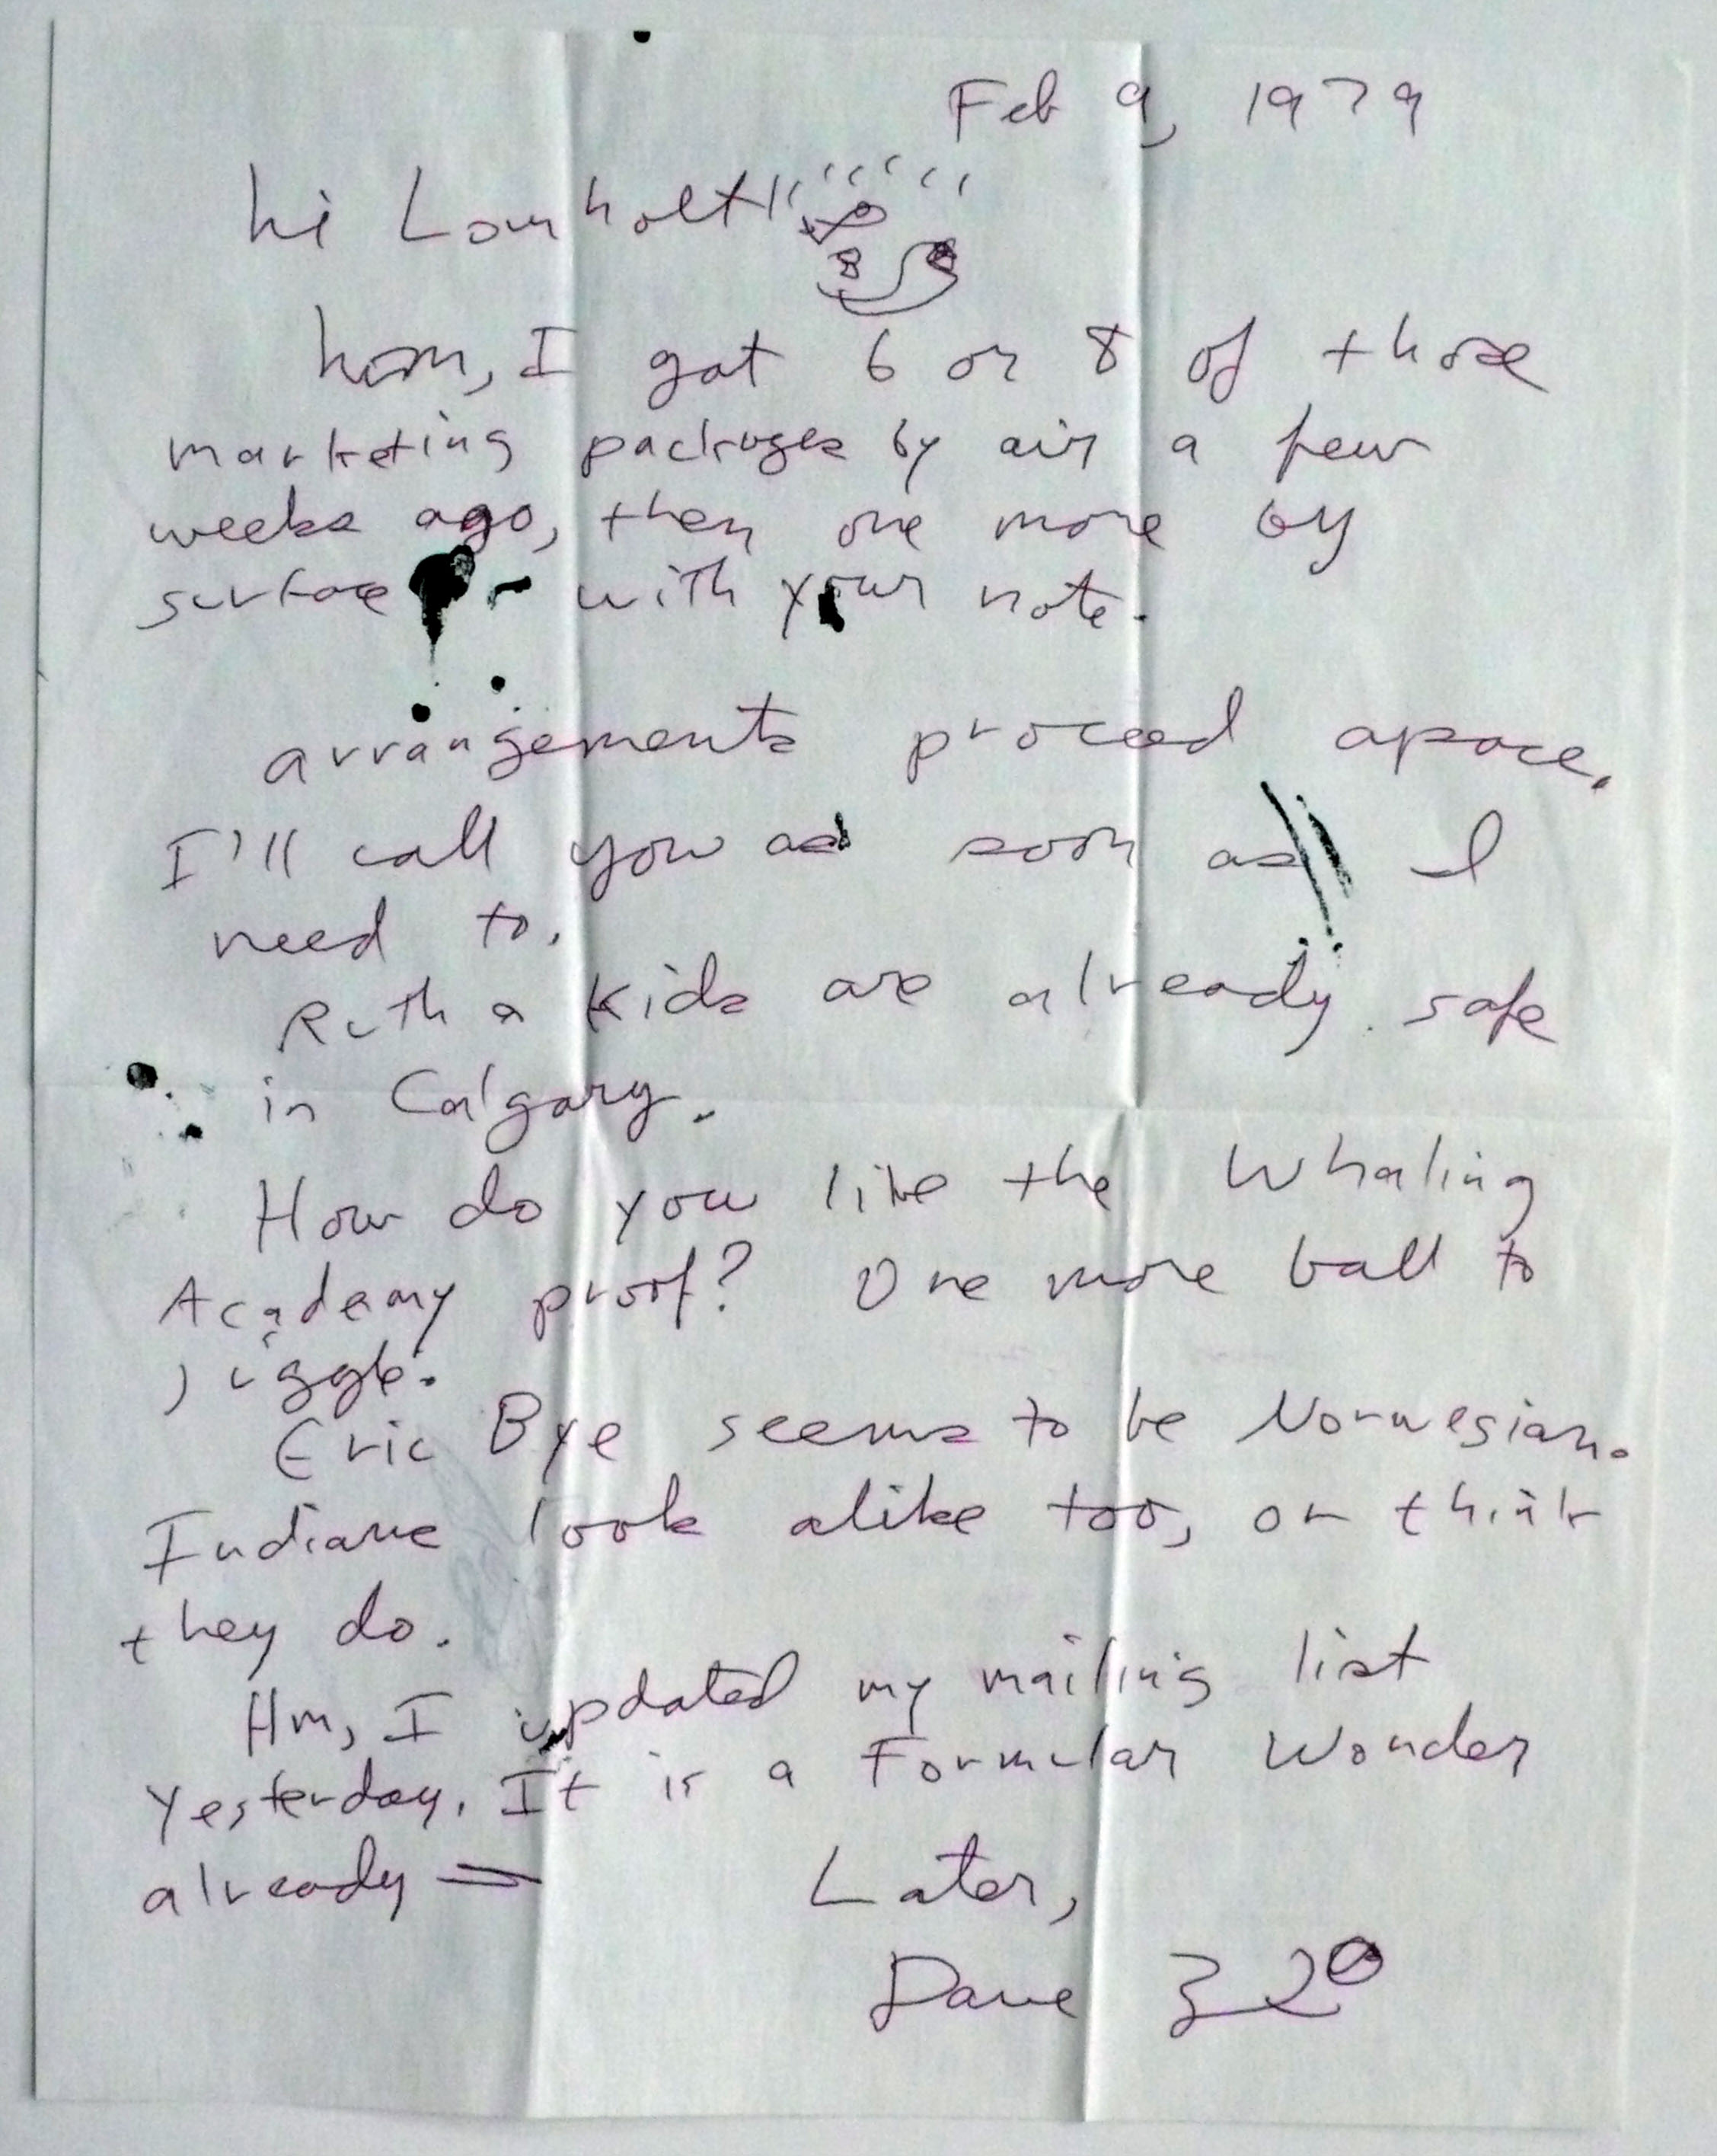 Feb 9, 1979
hi Lomholt!!
hmm, I got 6 or 8 of those
marketing packages by air a few
weeks ago, then one more by
surface - with your note.
arrangements proceed apace.
I'll call you as soon as I
need to.
Ruth & kids are already safe
in Calgary.
How do you like the Whaling
Academy proof? One more ball to
jiggle.
Eric Bye seems to be Norwegian.
Indians look alike too, or think
they do.
Hm, I updated my mailing list
yesterday. It is a Formular Wonder
already —
Later,
Dave